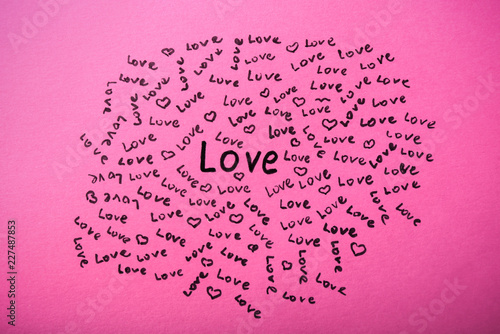 Love Love Love Love
Love Love Love Love Love
Love Love Love Love Love Love
Love Love Love Love Love Love Love
Love Love Love Love Love Love Love
Love Love Love Love Love Love Love Love
Love Love Love Love Love Love Love
Love
Love Love Love Love Love Love
Love Love Love Love Love Love Love
Love Love Love Love Love Love Love
Love Love Love Love Love Love Love Love
Love Love Love Love Love Love Love
Love Love Love Love Love Love Love
Love Love Love Love Love Love
Love Love Love Love
Adobe Stock | #227487853